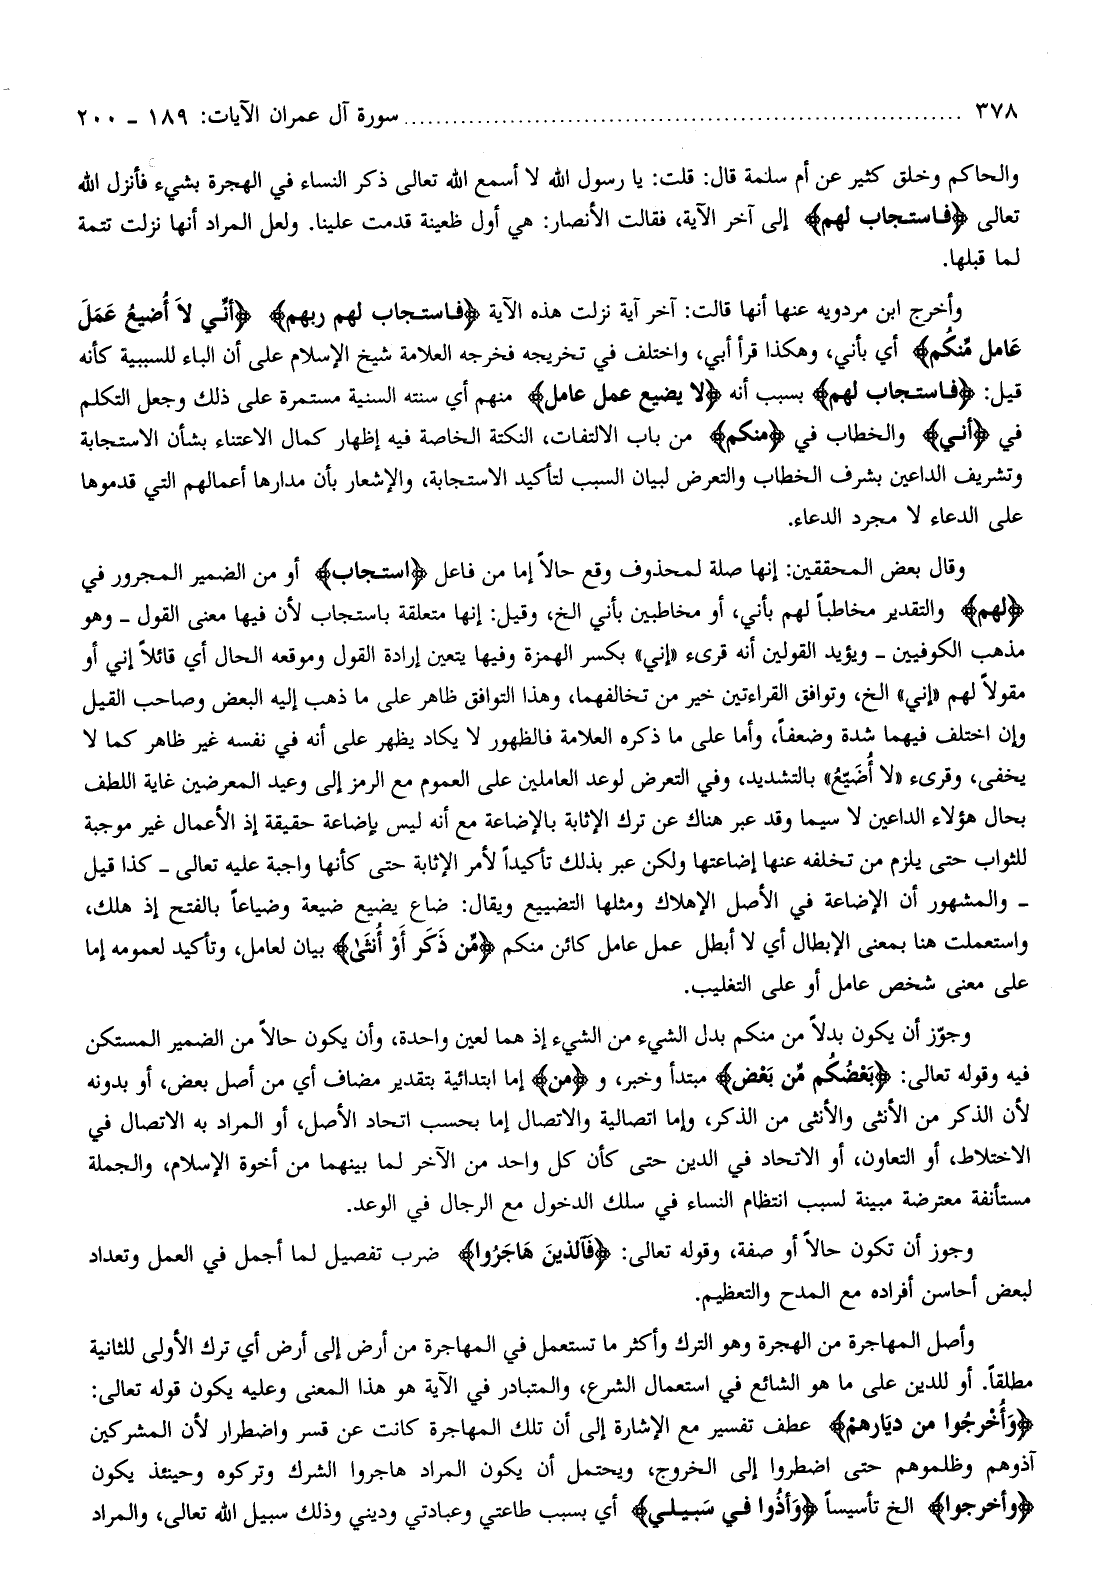 ٣٧٨ ........................................................ سورة آل عمران الآيات: ١٨٩ ـ ٢٠٠
والحاكم وخلق كثير عن أم سلمة قال: قلت: يا رسول الله لا أسمع الله تعالى ذكر النساء في الهجرة بشيء فأنزل الله
تعالى ﴿فاستجاب لهم﴾ إلى آخر الآية، فقالت الأنصار: هي أول ظعينة قدمت علينا. ولعل المراد أنها نزلت تتمة
لما قبلها.
وأخرج ابن مردويه عنها أنها قالت: آخر آية نزلت هذه الآية ﴿فاستجاب لهم ربهم﴾ ﴿أنِّي لاَ أُضيعُ عَمَلَ
عَامل مِّنكُم﴾ أي بأني، وهكذا قرأ أبي، واختلف في تخريجه فخرجه العلامة شيخ الإسلام على أن الباء للسببية كأنه
قيل: ﴿فاستجاب لهم﴾ بسبب أنه ﴿لا يضيع عمل عامل﴾ منهم أي سنته السنية مستمرة على ذلك وجعل التكلم
في ﴿أني﴾ والخطاب في ﴿منكم﴾ من باب الالتفات، النكتة الخاصة فيه إظهار كمال الاعتناء بشأن الاستجابة
وتشريف الداعين بشرف الخطاب والتعرض لبيان السبب لتأكيد الاستجابة، والإشعار بأن مدارها أعمالهم التي قدموها
على الدعاء لا مجرد الدعاء.
وقال بعض المحققين: إنها صلة لمحذوف وقع حالاً إما من فاعل ﴿استجاب﴾ أو من الضمير المجرور في
﴿لهم﴾ والتقدير مخاطباً لهم بأني، أو مخاطبين بأني الخ، وقيل: إنها متعلقة باستجاب لأن فيها معنى القول ـ وهو
مذهب الكوفيين ـ ويؤيد القولين أنه قرىء «إني» بكسر الهمزة وفيها يتعين إرادة القول وموقعه الحال أي قائلاً إني أو
مقولاً لهم «إني» الخ، وتوافق القراءتين خير من تخالفهما، وهذا التوافق ظاهر على ما ذهب إليه البعض وصاحب القيل
وإن اختلف فيهما شدة وضعفاً، وأما على ما ذكره العلامة فالظهور لا يكاد يظهر على أنه في نفسه غير ظاهر كما لا
يخفى، وقرىء «لا أُضَيّعُ» بالتشديد، وفي التعرض لوعد العاملين على العموم مع الرمز إلى وعيد المعرضين غاية اللطف
بحال هؤلاء الداعين لا سيما وقد عبر هناك عن ترك الإثابة بالإضاعة مع أنه ليس بإضاعة حقيقة إذ الأعمال غير موجبة
للثواب حتى يلزم من تخلفه عنها إضاعتها ولكن عبر بذلك تأكيداً لأمر الإثابة حتى كأنها واجبة عليه تعالى ـ كذا قيل
ـ والمشهور أن الإضاعة في الأصل الإهلاك ومثلها التضييع ويقال: ضاع يضيع ضيعة وضياعاً بالفتح إذ هلك،
واستعملت هنا بمعنى الإبطال أي لا أبطل عمل عامل كائن منكم ﴿مِّن ذَكَر أَوْ أُنثَىٰ﴾ بيان لعامل، وتأكيد لعمومه إما
على معنى شخص عامل أو على التغليب.
وجوّز أن يكون بدلاً من منكم بدل الشيء من الشيء إذ هما لعين واحدة، وأن يكون حالاً من الضمير المستكن
فيه وقوله تعالى: ﴿بَعْضُكُم مِّن بَعْض﴾ مبتدأ وخبر، و ﴿من﴾ إما ابتدائية بتقدير مضاف أي من أصل بعض، أو بدونه
لأن الذكر من الأنثى والأنثى من الذكر، وإما اتصالية والاتصال إما بحسب اتحاد الأصل، أو المراد به الاتصال في
الاختلاط، أو التعاون، أو الاتحاد في الدين حتى كأن كل واحد من الآخر لما بينهما من أخوة الإسلام، والجملة
مستأنفة معترضة مبينة لسبب انتظام النساء في سلك الدخول مع الرجال في الوعد.
وجوز أن تكون حالاً أو صفة، وقوله تعالى: ﴿فَآلذينَ هَاجَرُوا﴾ ضرب تفصيل لما أجمل في العمل وتعداد
لبعض أحاسن أفراده مع المدح والتعظيم.
وأصل المهاجرة من الهجرة وهو الترك وأكثر ما تستعمل في المهاجرة من أرض إلى أرض أي ترك الأولى للثانية
مطلقاً. أو للدين على ما هو الشائع في استعمال الشرع، والمتبادر في الآية هو هذا المعنى وعليه يكون قوله تعالى:
﴿وَأُخْرجُوا من ديَارهمْ﴾ عطف تفسير مع الإشارة إلى أن تلك المهاجرة كانت عن قسر واضطرار لأن المشركين
آذوهم وظلموهم حتى اضطروا إلى الخروج، ويحتمل أن يكون المراد هاجروا الشرك وتركوه وحينئذ يكون
﴿وأخرجوا﴾ الخ تأسيساً ﴿وَأذُوا في سَبيلي﴾ أي بسبب طاعتي وعبادتي وديني وذلك سبيل الله تعالى، والمراد